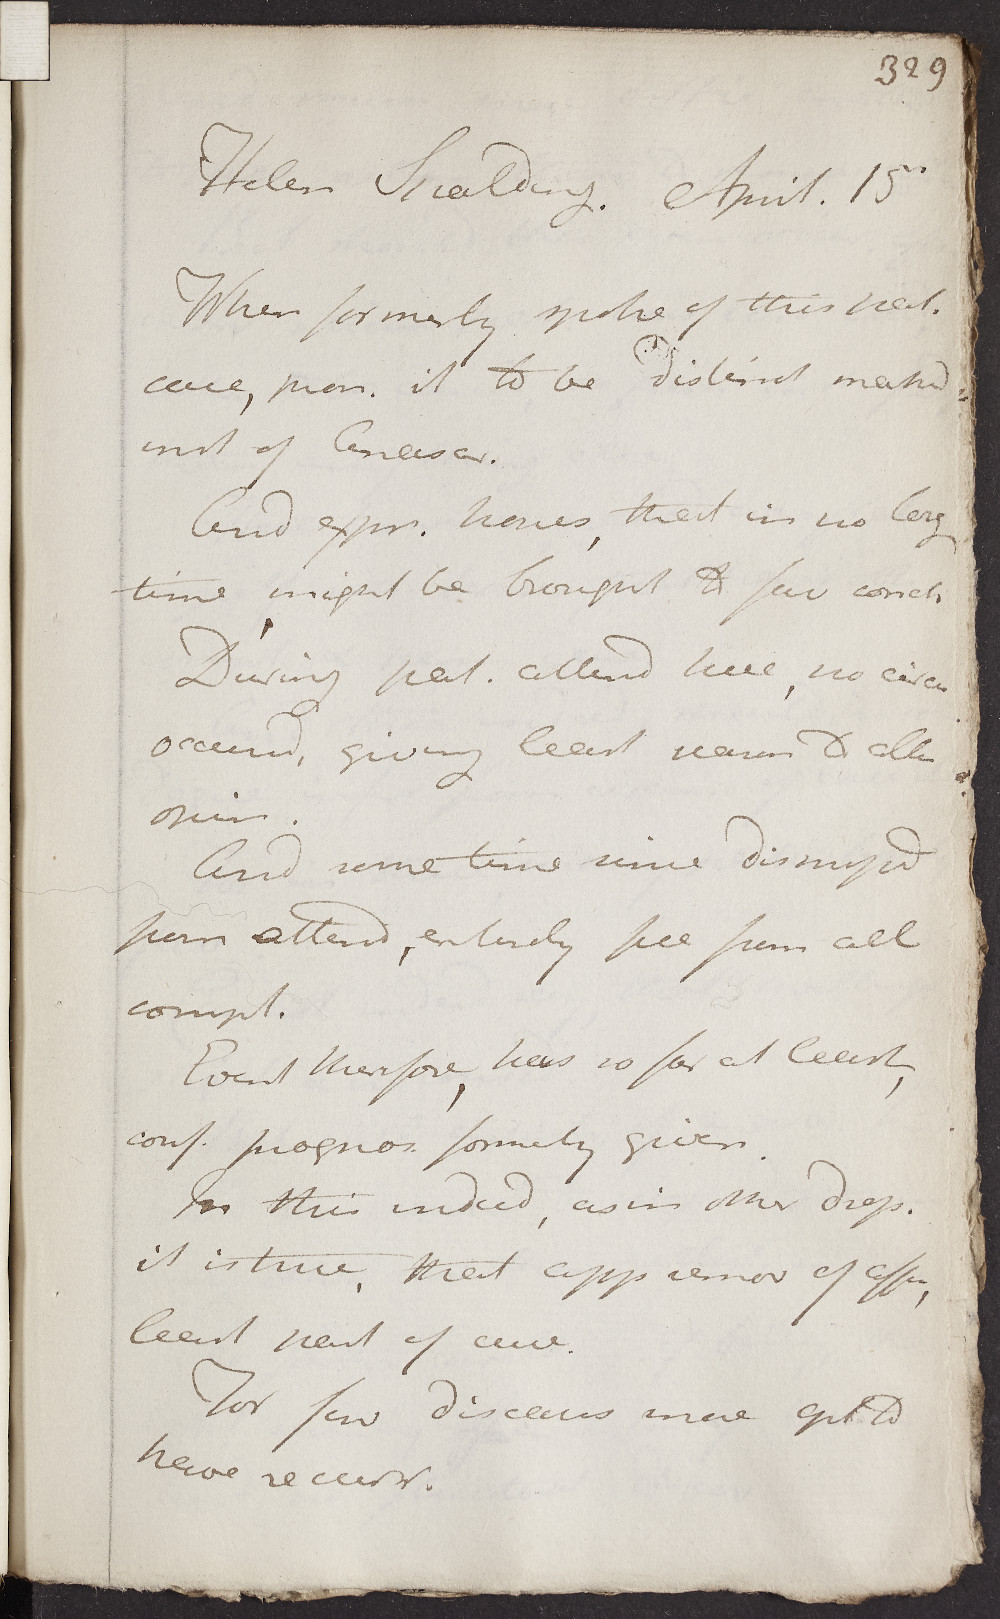 329
Helen Spalding. April. 15th
When formerly spoke of this pat.
case, pron. it to be a distinct marked
inst of Anasar.
And expr. hopes, that in no long
time, might be brought to fav conch
During pat. attend here, no circu
occurred, giving least reason to alter
opin.
And some time since dismissed
from attend, entirely free from all
compt.
Event therefore, has so far at least,
conf. prognos. formerly given.
In this indeed, as in other drops.
it is true, that app remov of affn,
least part of cure.
For few diseases more apt to
have recurr.